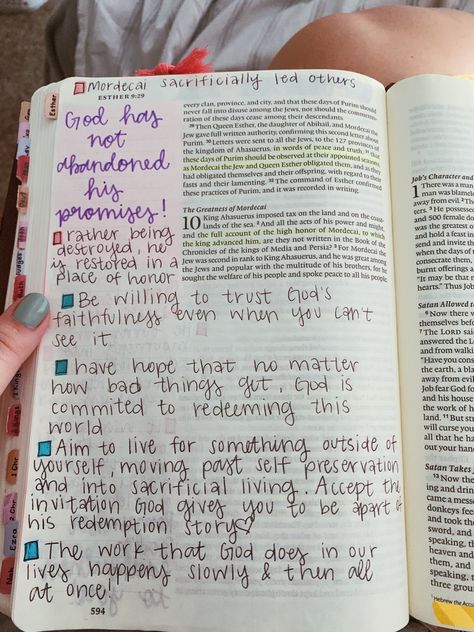 Mordecai sacrificially led others
ESTHER 9:29
God has
not
abandoned
his
promises!
rather being
destroyed, he
is restored in a
place of honor
every clan, province, and city, and that these days of Purim should
never fall into disuse among the Jews, nor should the commemora-
tion of these days cease among their descendants.
29 Then Queen Esther, the daughter of Abihail, and Mordecai the
Jew gave full written authority, confirming this second letter about
Purim. 30 Letters were sent to all the Jews, to the 127 provinces of
the kingdom of Ahasuerus, in words of peace and truth, 31 that
these days of Purim should be observed at their appointed seasons,
as Mordecai the Jew and Queen Esther obligated them, and as they
had obligated themselves and their offspring, with regard to their
fasts and their lamenting. 32 The command of Esther confirmed
these practices of Purim, and it was recorded in writing.
The Greatness of Mordecai
10 King Ahasuerus imposed tax on the land and on the coast-
lands of the sea. 2 And all the acts of his power and might,
and the full account of the high honor of Mordecai, to which
the king advanced him, are they not written in the Book of the
Chronicles of the kings of Media and Persia? 3 For Mordecai the
Jew was second in rank to King Ahasuerus, and he was great among
the Jews and popular with the multitude of his brothers, for he
sought the welfare of his people and spoke peace to all his people.
Be willing to trust God's
faithfulness even when you can't
see it.
have hope that no matter
how bad things get, God is
commited to redeeming this
world
Aim to live for something outside of
yourself, moving past self preservation
and into sacrificial living. Accept the
invitation God gives you to be apart of
his redemption story♡
The work that God does in our
lives happens slowly & then all
at once!
594
Esther
1 Kings
1 Chr
2 Chr
Ezra
Neh
Job's Character and
1 There was a
man was blameless
away from evil. 2
ters. 3 He possessed
and 500 female
was the greatest of
and hold a feast in
send and invite the
when the days of
consecrate them,
burnt offerings a
"It may be that m
hearts." Thus Job
Satan Allowed t
6 Now there w
themselves before
7 The LORD said
LORD and said,
and from walking
"Have you cons
the earth, a bla
away from evil
Job fear God for
and his house
the work of h
land. 11 But str
will curse you
all that he h
your hand."
the LORD.
Satan Takes
13 Now the
ing and drin
came a mes
donkeys feed
and took th
sword, and
speaking, th
heaven and
them, and
speaking,
1 Hebrew the Accu